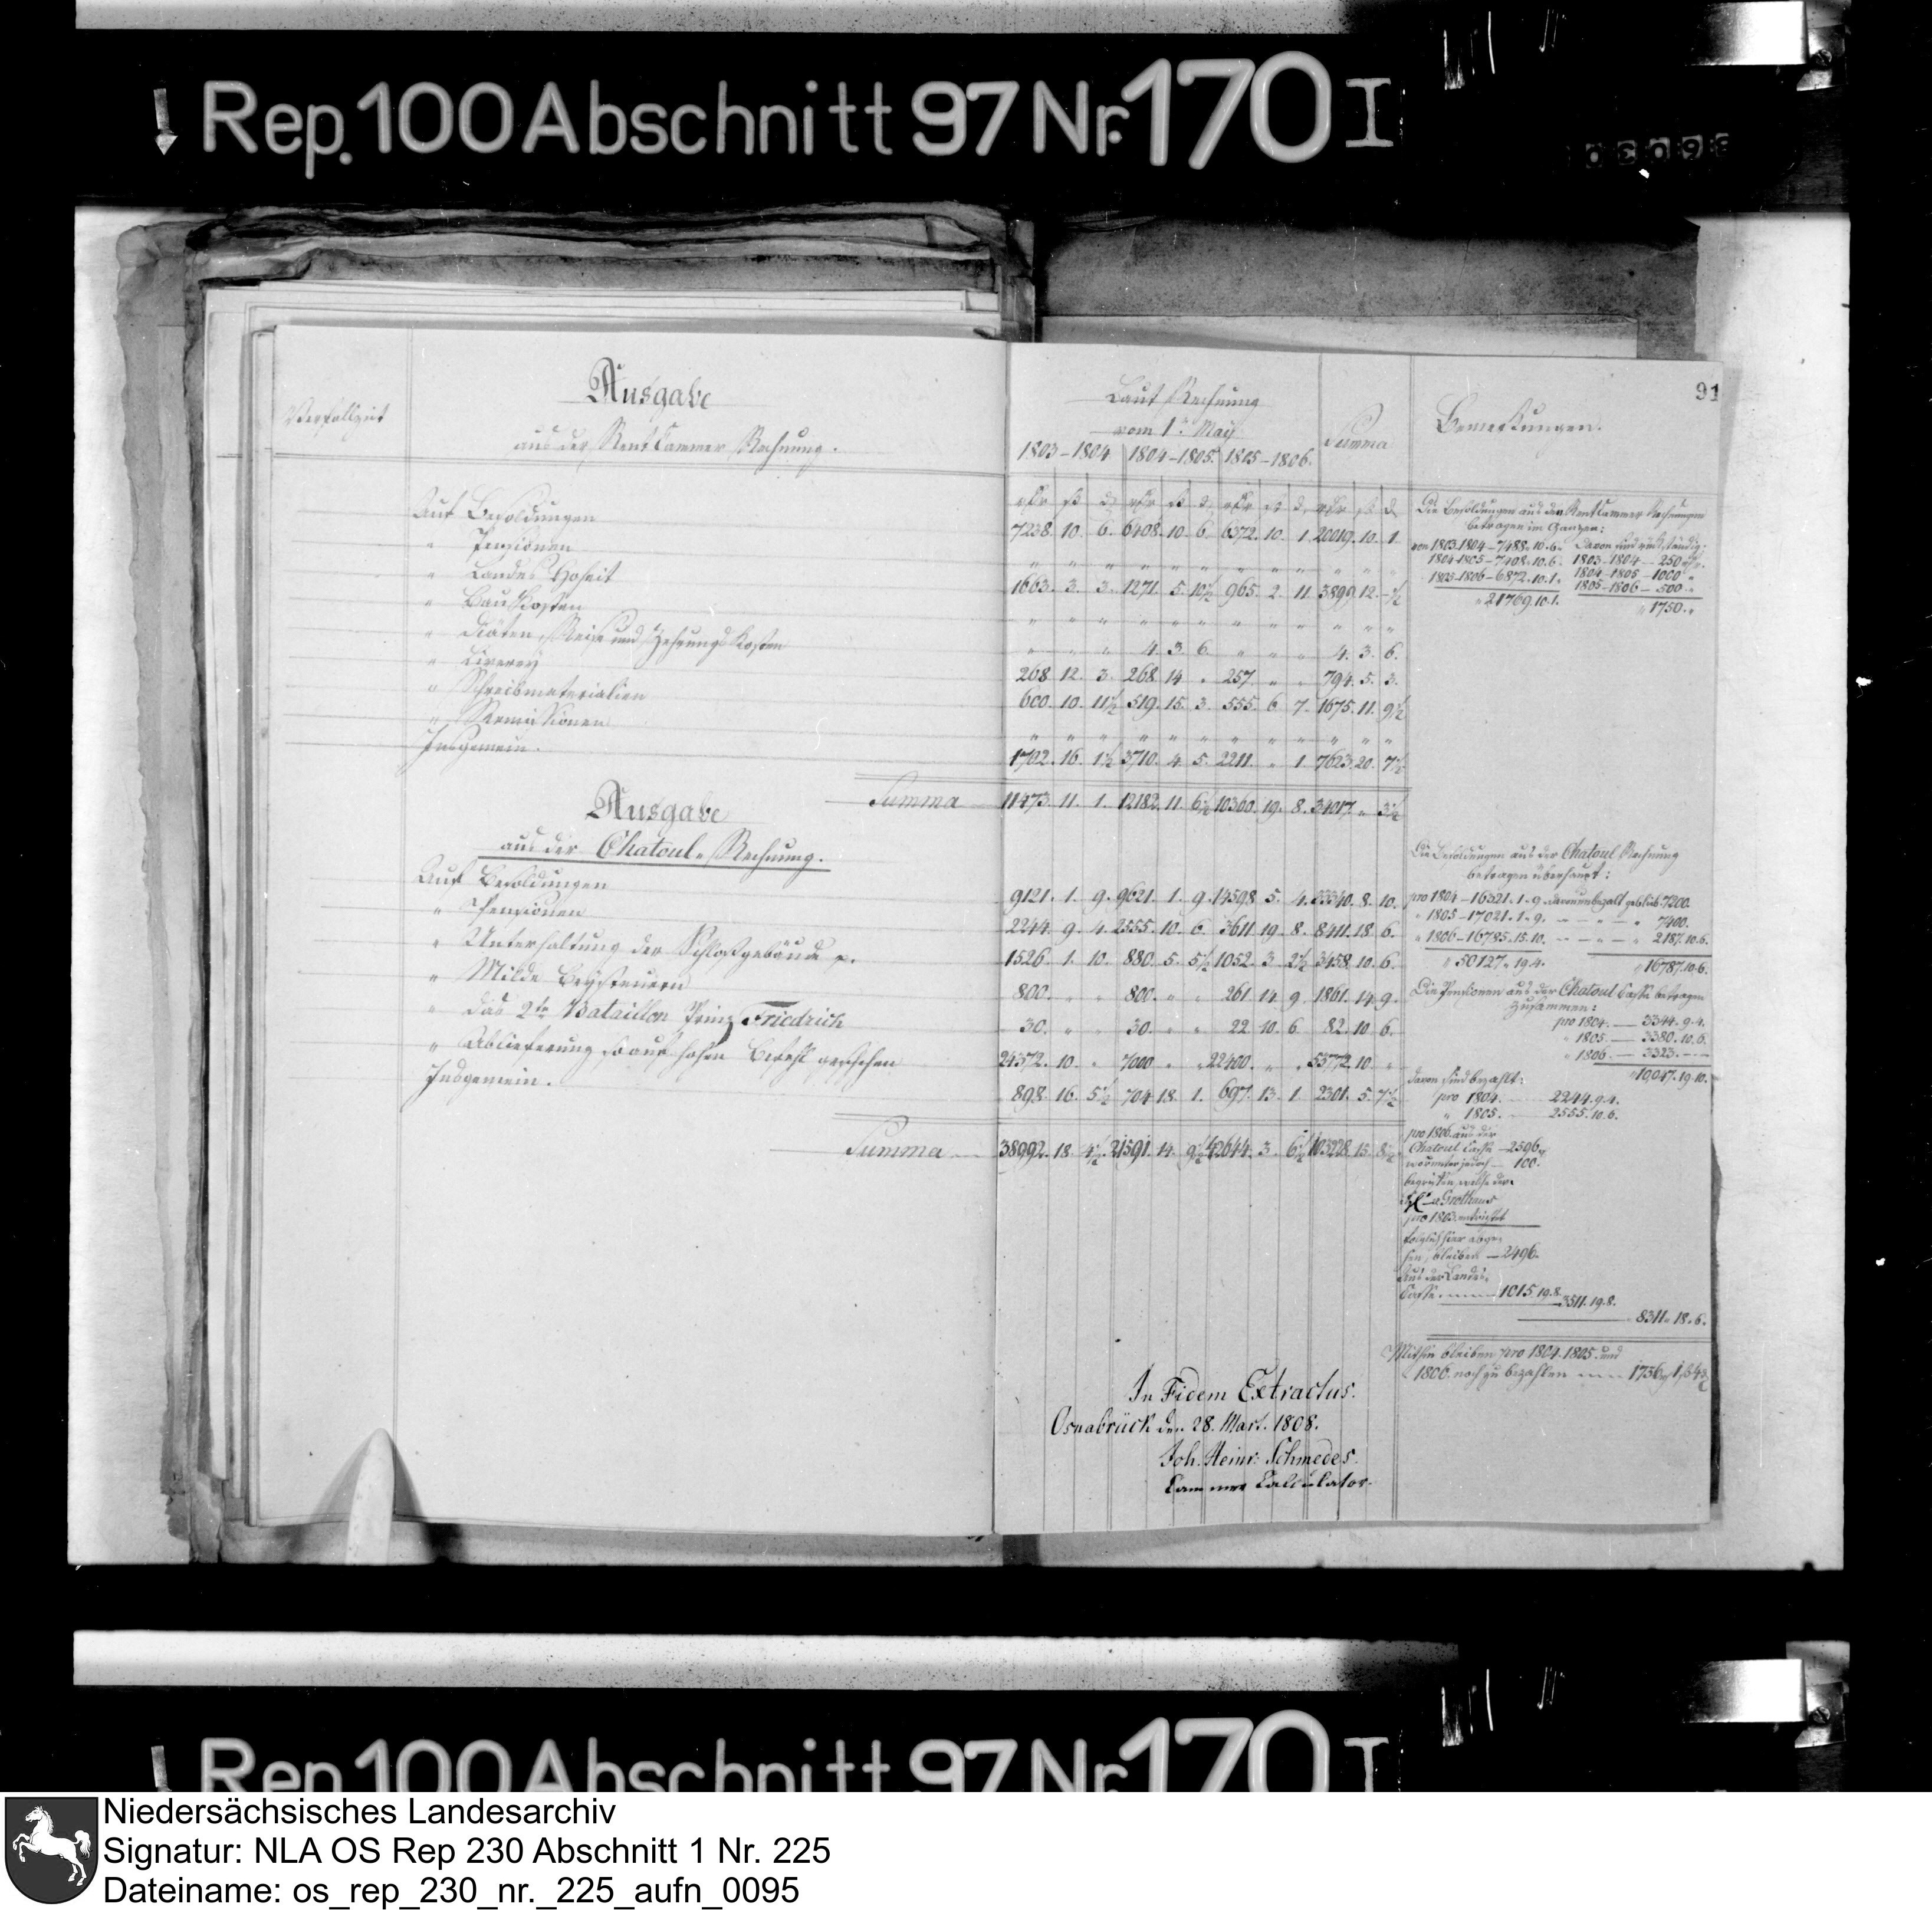 Rep. 100 Abschnitt 97 Nr. 170 I
91
Verfallzeit
Ausgabe
aus der Rent Cammer Rechnung.
Laut Rechnung
vom 1ten May
1803-1804 1804-1805. 1805-1806.
Summa
Bemerkungen.
Auf Besoldungen 7238. 10. 6. 6408. 10. 6. 6372. 10. 1. 20019. 10. 1.
" Pensionen " " " " " " " " " " " "
" Landes Hoheit 1663. 3. 3. 1271. 5. 10½ 965. 2. 11. 3899. 12. -½
" Bau Kosten " " " " " " " " " " " "
" Diäten, Reise und Zehrungs Kosten " " " 4. 3. 6. " " " 4. 3. 6.
" Liverey 268. 12. 3. 268. 14. " 257. " " 794. 5. 3.
" Schreibmaterialien 600. 10. 11½ 519. 15. 3. 555. 6. 7. 1675. 11. 9½
" Remissionen " " " " " " " " " " " "
Insgemein. 1702. 16. 1½ 3710. 4. 5. 2211. " 1. 7623. 20. 7½
Summa 11473. 11. 1. 12182. 11. 6½ 10360. 19. 8. 34017. " 3½
Die Besoldungen aus den Rent Cammer Rechnungen
betragen im Ganzen:
von 1803-1804 - 7488. 10. 6. Davon sind rückständig:
1804-1805 - 7408. 10. 6. 1803-1804 - 250
1805-1806 - 6872. 10. 1. 1804-1805 - 1000
1805-1806 - 500
" 21769. 10. 1. " 1750. "
Ausgabe
aus der Chatoul-Rechnung.
Auf Besoldungen 9121. 1. 9. 9621. 1. 9. 14598. 5. 4. 33340. 8. 10.
" Pensionen 2244. 9. 4. 2555. 10. 6. 3611. 19. 8. 8411. 18. 6.
" Unterhaltung der Schloßgebäude p. 1526. 1. 10. 880. 5. 5½ 1052. 3. 2½ 3458. 10. 6.
" Milde Beysteuern 800. " " 800. " " 261. 14. 9. 1861. 14. 9.
" das 2te Bataillon Prinz Friedrich 30. " " 30. " " 22. 10. 6. 82. 10. 6.
" Ablieferung so auf hohen Befehl geschehen 24372. 10. " 7000 " " 22400. " " 53772. 10. "
Insgemein. 898. 16. 5½ 704. 18. 1. 697. 13. 1. 2301. 5. 7½
Summa 38992. 18. 4½ 21591. 14. 9½ 42644. 3. 6½ 103228. 15. 8½
Die Besoldungen aus der Chatoul Rechnung
betragen überhaupt:
pro 1804 - 16321. 1. 9. davon unbezahlt geblieb. 7200.
" 1805 - 17021. 1. 9. - - " - " 7400.
" 1806 - 16785. 15. 10. - - " - " 2187. 10. 6.
" 50127. 19. 4. " 16787. 10. 6.
Die Pensionen aus der Chatoul Casse betragen
zusammen:
pro 1804. - 3344. 9. 4.
" 1805. - 3380. 10. 6.
" 1806. - 3323. - -
" 10047. 19. 10.
davon sind bezahlt:
pro 1804. 2244. 9. 4.
" 1805. 2555. 10. 6.
pro 1806. aus der
Chatoul Casse - 2596
worunter jedoch - 100.
begriffen, welche der
v. Grothaus
pro 1803 entrichtet
folglich hier abge-
hen, bleiben - 2496.
Aus der Landes
Casse 1015. 19. 8.
3511. 19. 8.
8311. 18. 6.
Mithin bleiben pro 1804. 1805. und
1806. noch zu bezahlen 1736
In Fidem Extractus.
Osnabrück den 28. Mart. 1808.
Joh. Heinr. Schmedes.
Cammer Calculator.
Rep. 100 Abschnitt 97 Nr. 170 I
Niedersächsisches Landesarchiv
Signatur: NLA OS Rep 230 Abschnitt 1 Nr. 225
Dateiname: os_rep_230_nr._225_aufn_0095